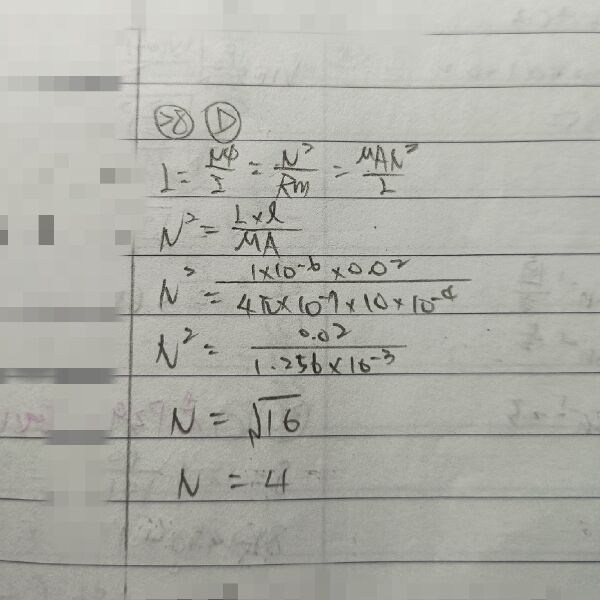 28 D
L = NΦ/I = N²/Rm = MAN²/L
N² = L×l/MA
N² = 1×10⁻⁶×0.02/4π×10⁻⁷×10×10⁻⁴
N² = 0.02/1.256×10⁻³
N = √16
N = 4